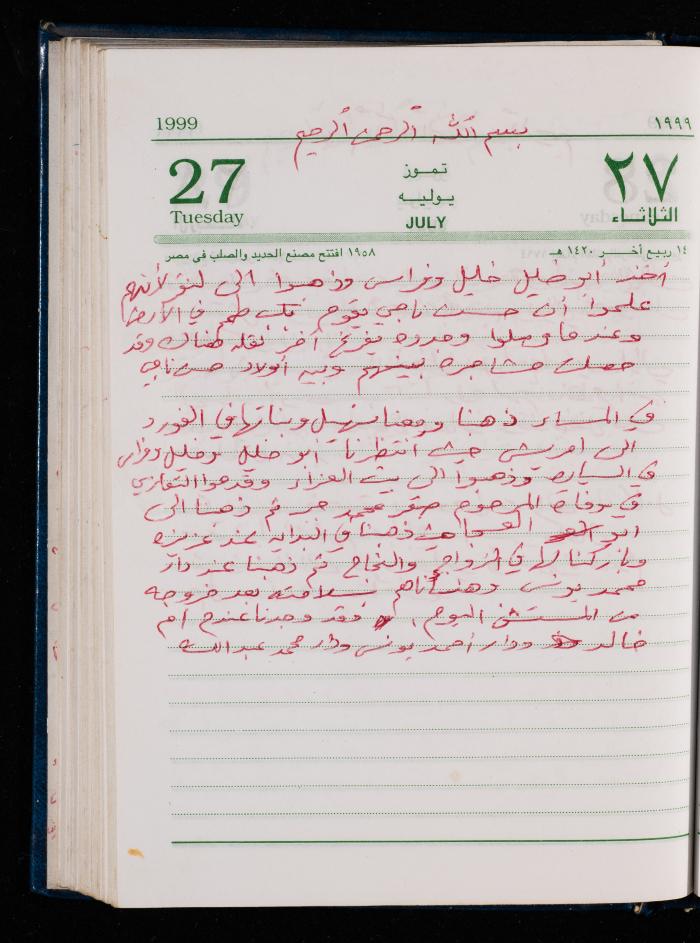 1999 ١٩٩٩
بسم الله الرحمن الرحيم
27 تمـوز ٢٧
Tuesday يوليـه الثلاثاء
JULY
١٤ ربيع آخـر ١٤٢٠ هـ ١٩٥٨ افتتح مصنع الحديد والصلب فى مصر
أخذ أبو خليل خليل وفراس وذهبوا الى لأنهم
علموا أن حسن ناجي يقوم في الأرض
وعندما وصلوا وجدوه يفرغ آخر نقله هناك وقد
حصلت مشاجرة بينهم وبين أولاد حسن ناجي
في المساء ذهبنا ومعنا سهيل وبناتها في الفورد
الى حيث انتظرنا أبو خليل وخليل وفراس
في السيارة وذهبوا الى بيت العزاء وقدموا التعازي
في وفاة المرحوم صقر محمد ثم ذهبنا الى
ابو ذهبنا في البداية عند عزيزه
وباركنا لها في الزواج والنجاح ثم ذهبنا عند دار
محمد يونس وهنأناهم بسلامته بعد خروجه
من المستشفى اليوم، فقد وجدنا عندهم ام
خالد ودار أحمد يونس ودار محمد عبد الله